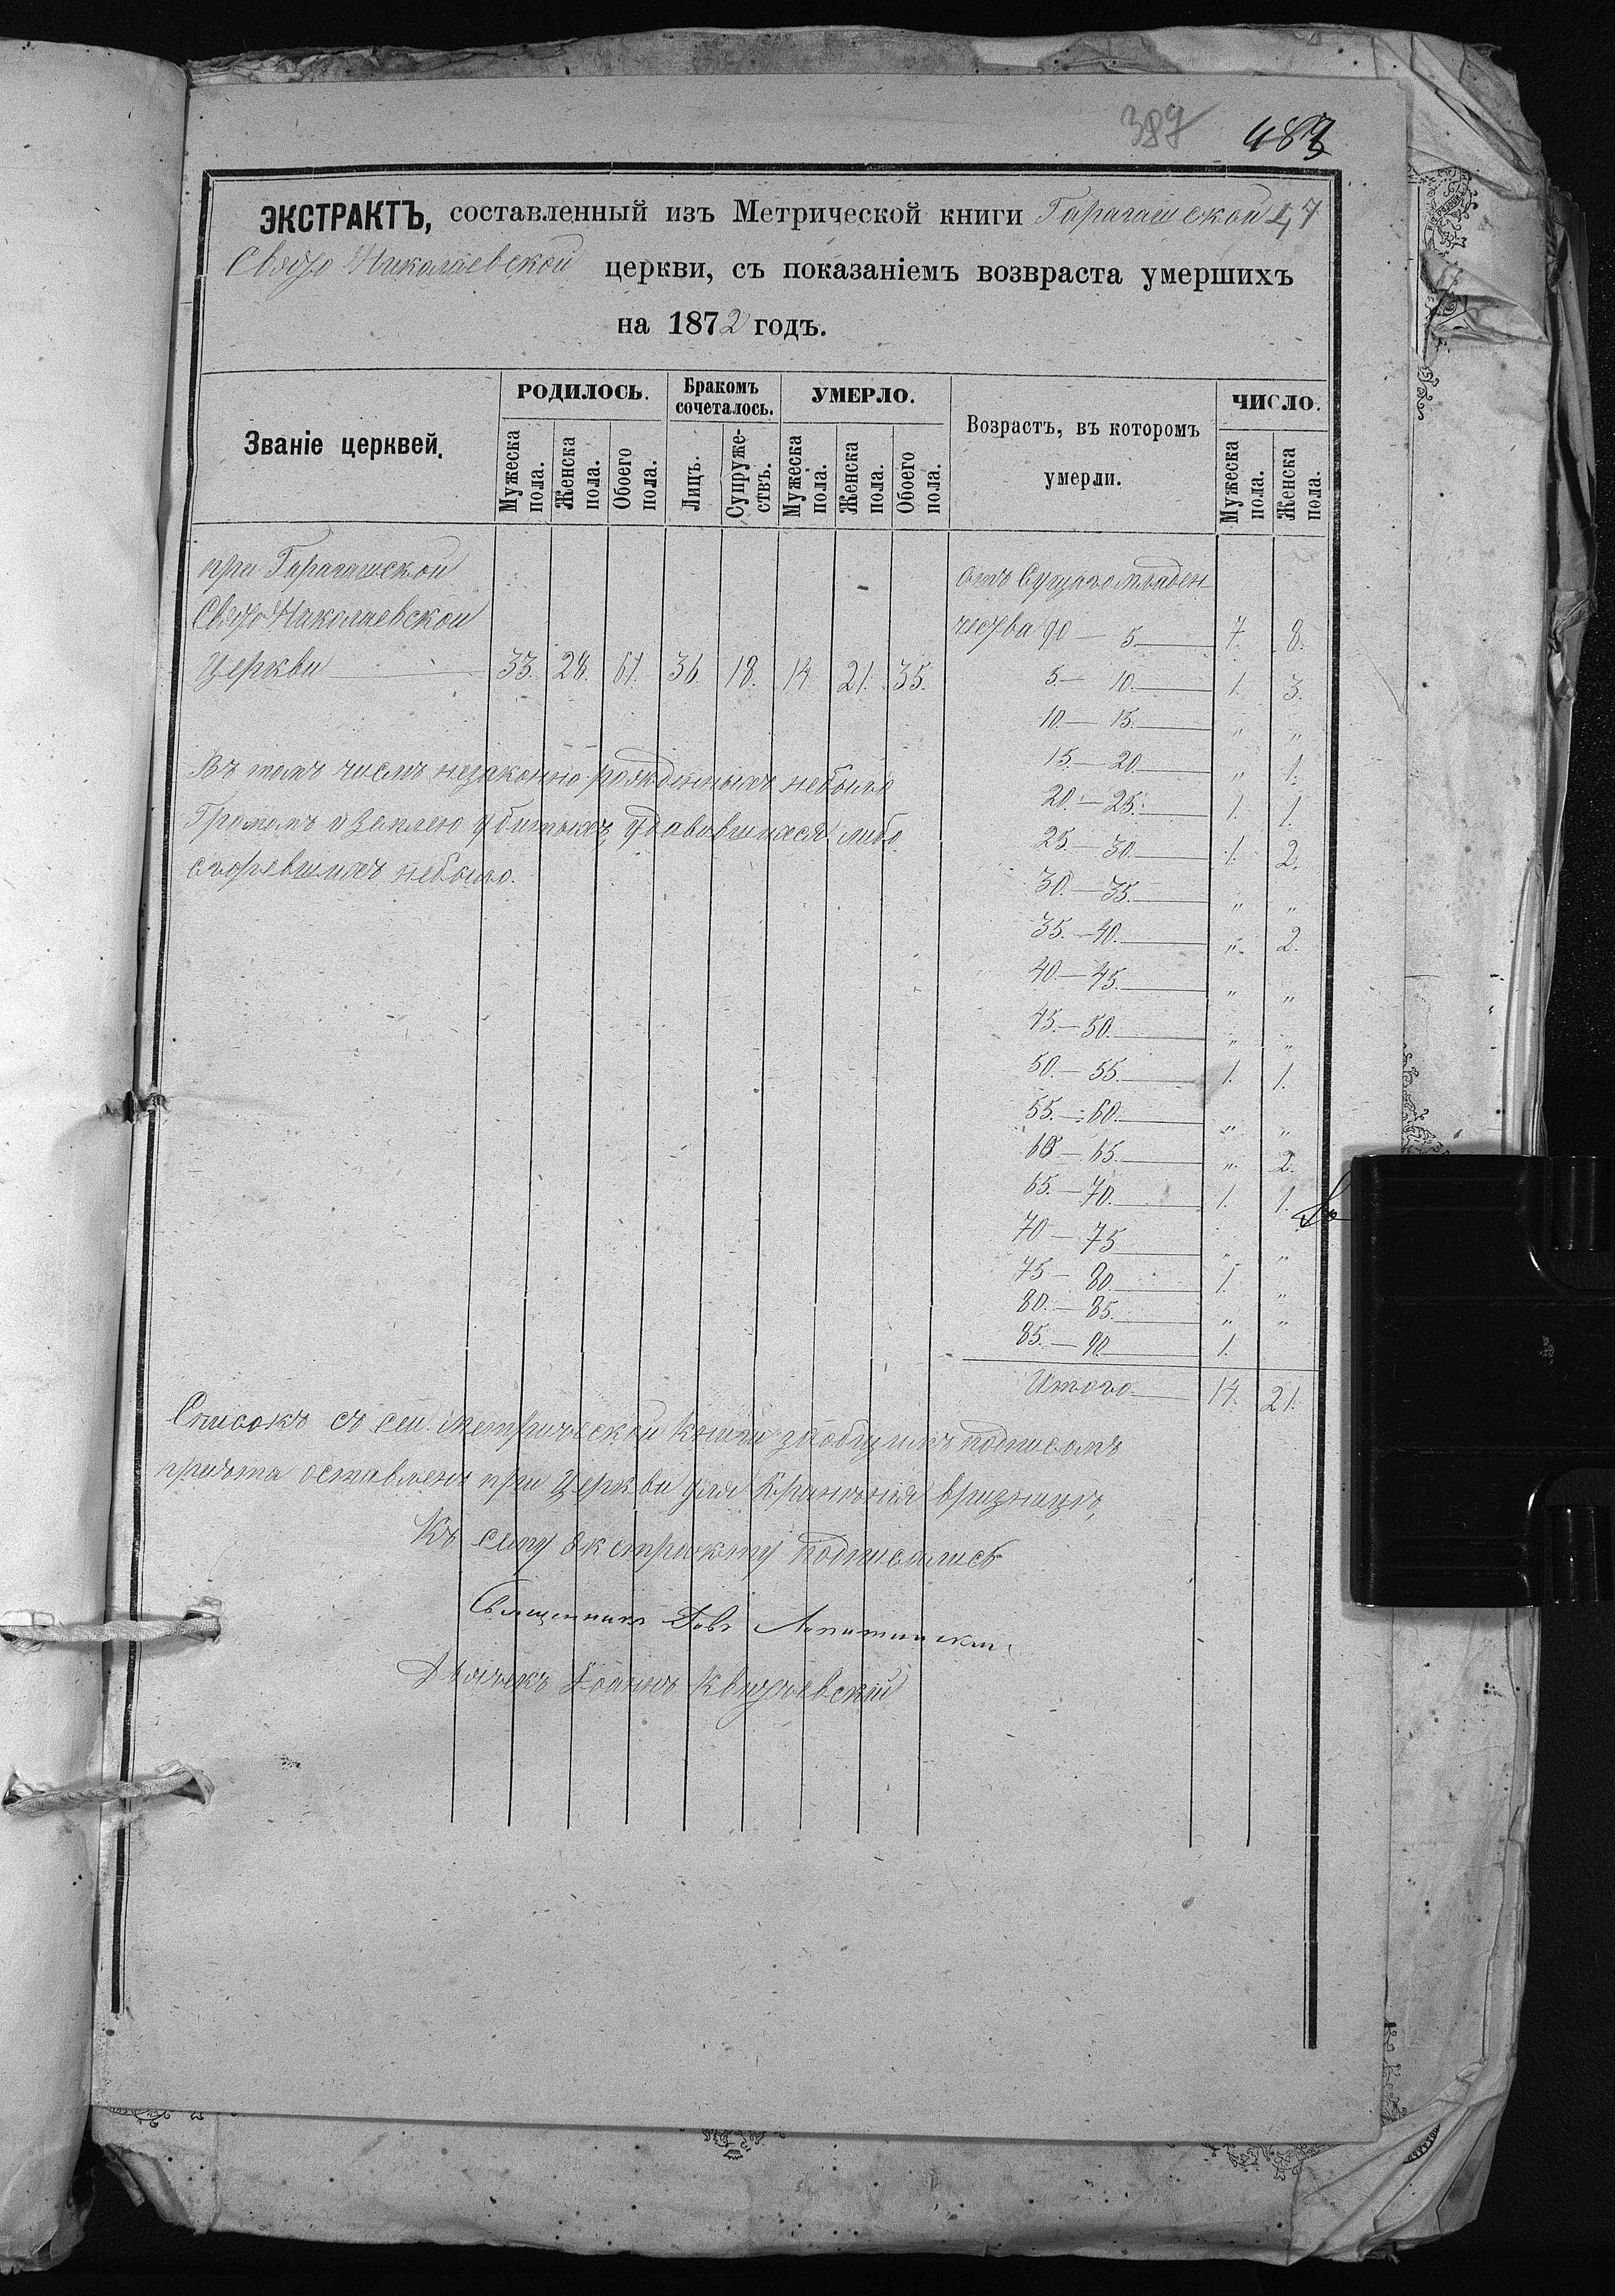 389
483
ЭКСТРАКТЪ, составленный изъ Метрической книги Гарагашской 47
Свято Николаевской церкви, съ показаніемъ возвраста умершихъ
на 1872 годъ.
Званіе церквей.
РОДИЛОСЬ.
Бракомъ сочеталось.
УМЕРЛО.
Возрастъ, въ которомъ умерли.
ЧИСЛО.
Мужеска пола.
Женска пола.
Обоего пола.
Лицъ.
Супружествъ.
Мужеска пола.
Женска пола.
Обоего пола.
Мужеска пола.
Женска пола.
при Гарагашской
Свято Николаевской
Церкви 33. 28. 61. 36. 18. 14 21. 35.
отъ Сущаго младен
чества до — 5 7. 8.
5. — 10. 1. 3.
10. — 15. „ „
15. — 20. „ 1.
20. — 25. 1. 1.
25. — 30. 1. 2.
30. — 35. „ „
35. — 40. „ 2.
40 — 45. „ „
45. — 50. „ „
50. — 55. 1. 1.
55. — 60. „ „
60 — 65. „ 2.
65. — 70. 1. 1.
70 — 75 „ „
75 — 80. 1. „
80. — 85. „ „
85. — 90 1.
Итого 14. 21.
Въ томъ числѣ незаконно рожденныхъ небыло
Громомъ и Землею убитыхъ, удавившихся либо
сгорѣвшихъ небыло.
Списокъ съ сей метрической книги заобщимъ подписомъ
причта оставленъ при Церкви для Храненія вризницѣ,
Къ сему экстракту подписались
Священникъ Іовъ
Дьячекъ Іоаннъ